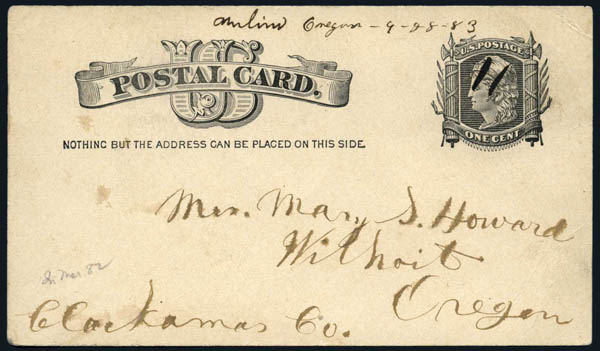 Oregon - 9-28-83
U.S. POSTAGE
US
POSTAL CARD.
ONE CENT
NOTHING BUT THE ADDRESS CAN BE PLACED ON THIS SIDE.
Mrs. Mary S. Howard
Wilhoit
Oregon
Clackamas Co.